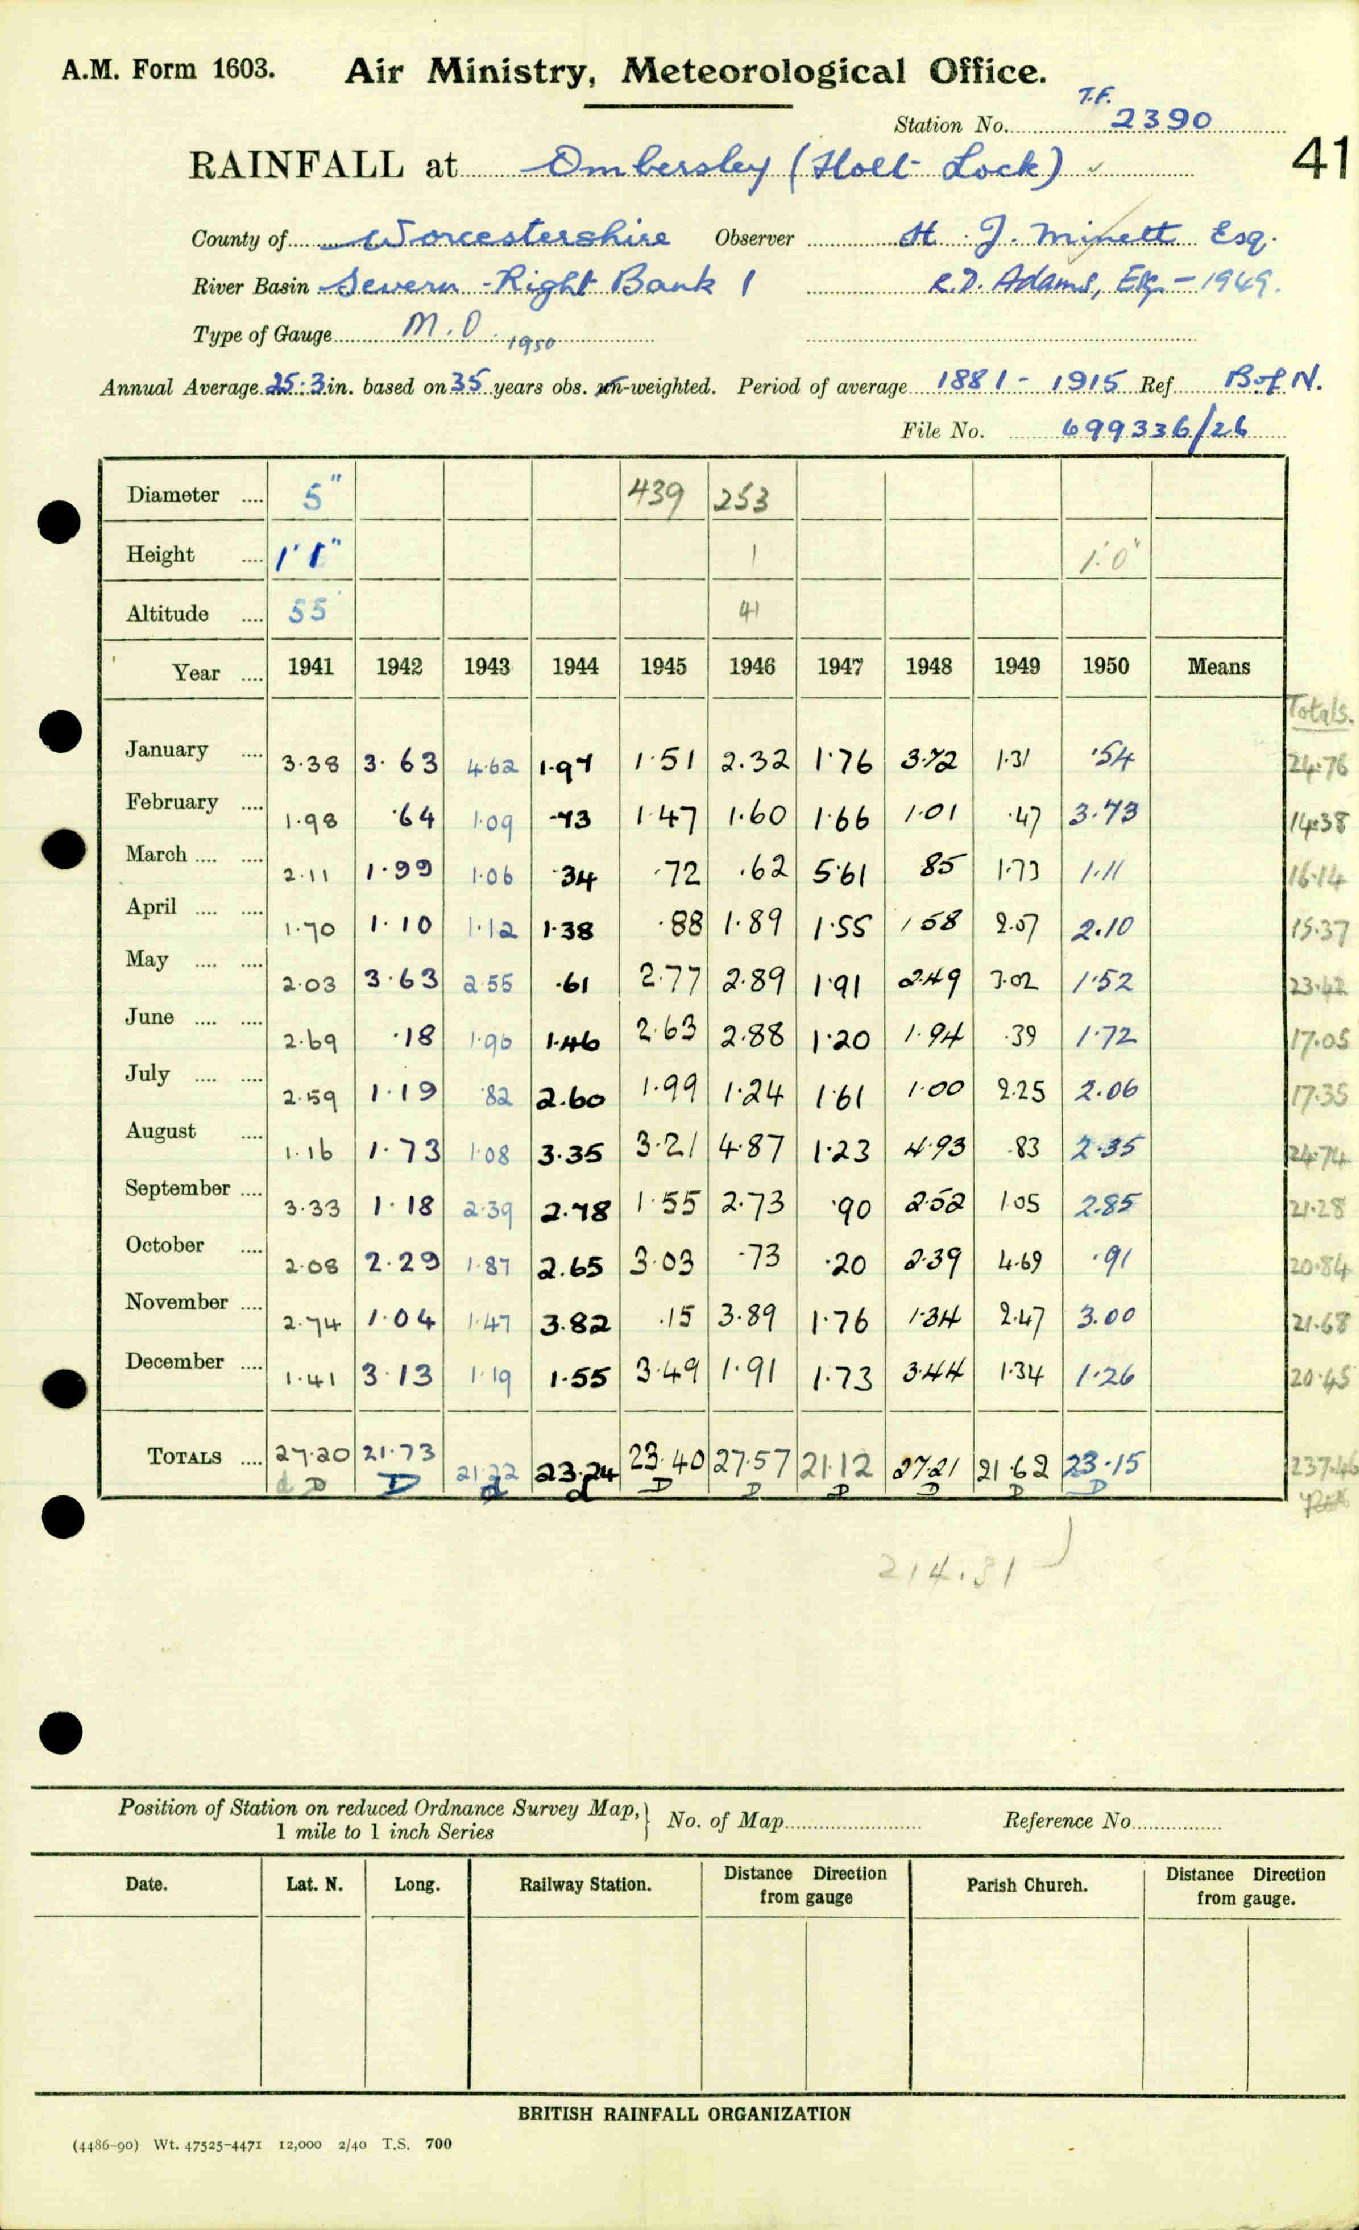 A.M. Form 1603. Air Ministry, Meteorological Office.
T.F.
Station No. 2390
41
RAINFALL at Ombersley (Holt Lock) ✓
County of Worcestershire Observer H. J. Minett Esq.
River Basin Severn - Right Bank 1 R.D. Adams, Esq. - 1949.
Type of Gauge M.O. 1950
Annual Average 25.3 in. based on 35 years obs. un-weighted. Period of average 1881 - 1915 Ref B of N.
File No. 699336/26
Diameter .... 5" 439 253
Height .... 1' 1" 1 1'.0"
Altitude .... 55' 41
Year .... 1941 1942 1943 1944 1945 1946 1947 1948 1949 1950 Means
Totals.
January .... 3.38 3.63 4.62 1.97 1.51 2.32 1.76 3.72 1.31 .54 24.76
February .... 1.98 .64 1.09 .73 1.47 1.60 1.66 1.01 .47 3.73 14.38
March .... .... 2.11 1.99 1.06 .34 .72 .62 5.61 .85 1.73 1.11 16.14
April .... .... 1.70 1.10 1.12 1.38 .88 1.89 1.55 1.58 2.07 2.10 15.37
May .... .... 2.03 3.63 2.55 .61 2.77 2.89 1.91 2.49 3.02 1.52 23.42
June .... .... 2.69 .18 1.96 1.46 2.63 2.88 1.20 1.94 .39 1.72 17.05
July .... .... 2.59 1.19 .82 2.60 1.99 1.24 1.61 1.00 2.25 2.06 17.35
August .... 1.16 1.73 1.08 3.35 3.21 4.87 1.23 4.93 .83 2.35 24.74
September .... 3.33 1.18 2.39 2.78 1.55 2.73 .90 2.52 1.05 2.85 21.28
October .... 2.08 2.29 1.87 2.65 3.03 .73 .20 2.39 4.69 .91 20.84
November .... 2.74 1.04 1.47 3.82 .15 3.89 1.76 1.34 2.47 3.00 21.68
December .... 1.41 3.13 1.19 1.55 3.49 1.91 1.73 3.44 1.34 1.26 20.45
TOTALS .... 27.20 21.73 21.22 23.24 23.40 27.57 21.12 27.21 21.62 23.15 237.46
d D D d d D D D D D D
214.31
Position of Station on reduced Ordnance Survey Map, 1 mile to 1 inch Series } No. of Map Reference No
Date. Lat. N. Long. Railway Station. Distance Direction from gauge Parish Church. Distance Direction from gauge.
BRITISH RAINFALL ORGANIZATION
(4486-90) Wt. 47525-4471 12,000 2/40 T.S. 700